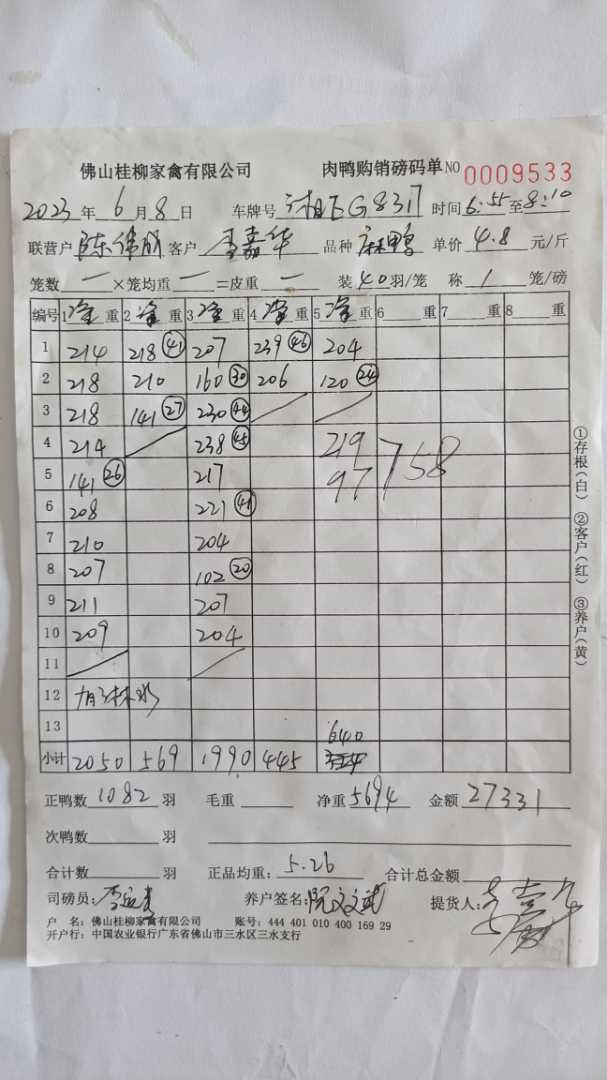 佛山桂柳家禽有限公司 肉鸭购销磅码单 NO 0009533
2023年6月8日 车牌号 湘EG8317 时间6:55至8:10
联营户 客户 李嘉华 品种 麻鸭 单价 4.8 元/斤
笼数 一 ×笼均重 一 =皮重 一 装 40 羽/笼 称 1 笼/磅
编号 1净重 2净重 3净重 4净重 5净重 6 重 7 重 8 重
1 214 218 (41) 207 239 (46) 204
2 218 210 160 (30) 206 120 (24)
3 218 141 (27) 230 (44)
4 214 238 (45) 219
5 141 (26) 217 97 758
6 208 221 (41)
7 210 204
8 207 102 (20)
9 211 207
10 209 204
11
12
13 640
小计 2050 569 1990 445
正鸭数 1082 羽 毛重 净重 5694 金额 27331
次鸭数 羽
合计数 羽 正品均重: 5.26 合计总金额
司磅员: 养户签名: 提货人:
户 名: 佛山桂柳家禽有限公司 账号: 444 401 010 400 169 29
开户行: 中国农业银行广东省佛山市三水区三水支行
①存根(白) ②客户(红) ③养户(黄)